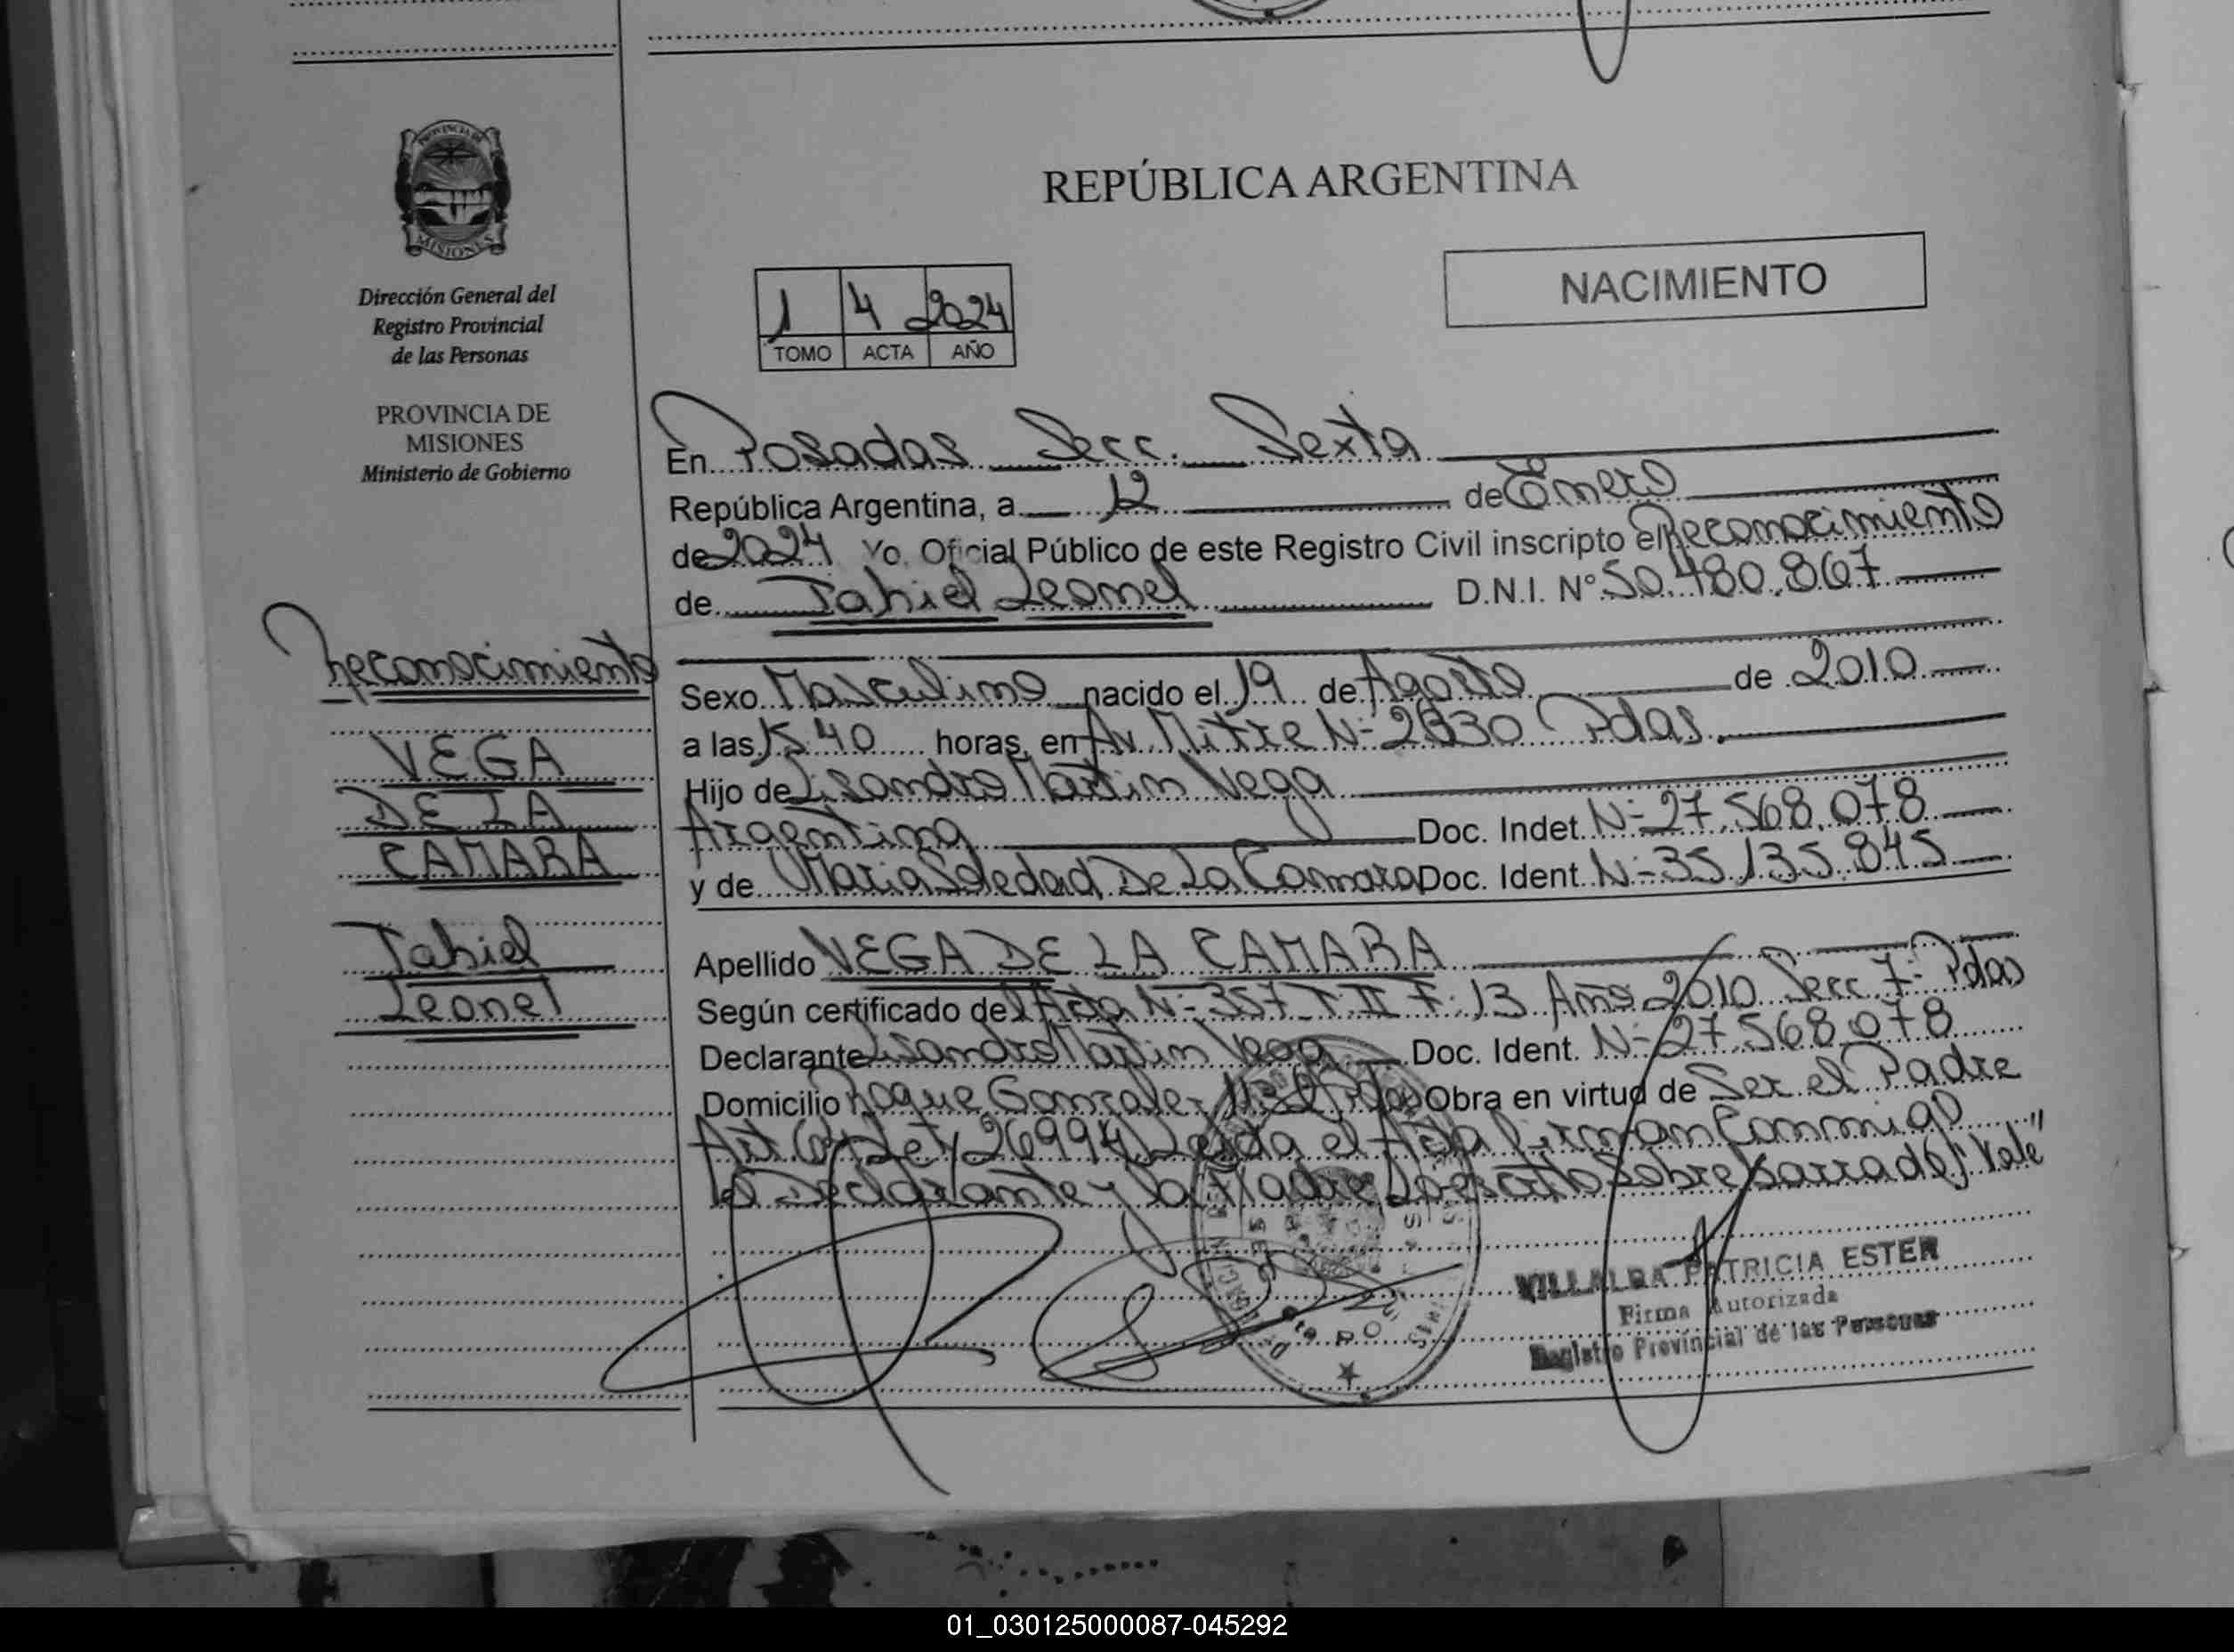 REPÚBLICA ARGENTINA
NACIMIENTO
PROVINCIA DE
MISIONES
Dirección General del
Registro Provincial
de las Personas
PROVINCIA DE
MISIONES
Ministerio de Gobierno
1 4 2024
TOMO ACTA AÑO
En Posadas Secc. Sexta
República Argentina, a 12 de Enero
de 2024 Yo, Oficial Público de este Registro Civil inscripto el Reconocimiento
de Tahiel Leonel D.N.I. N° 50.480.867
Sexo Masculino nacido el 19 de Agosto de 2010
a las 15 40 horas, en Av. Mitre N- 2330 Pdas.
Hijo de Lisandro Martin Vega
Argentina Doc. Indet. N- 27.568.078
y de Maria Soledad De La Camara Doc. Ident. N- 35.135.845
Apellido VEGA DE LA CAMARA
Según certificado del Acta N- 357 T. II F. 13 Año 2010 Secc 7- Pdas
Declarante Lisandro Martin Vega Doc. Ident. N- 27.568.078
Domicilio Roque Gonzalez Pdas Obra en virtud de Ser el Padre
Art. Ley 26994 Leida el Acta firman Conmigo
el Declarante y la Madre Lo escrito Sobre barrado "Vale"
Reconocimiento
VEGA
DE LA
CAMARA
Tahiel
Leonel
VILLALBA PATRICIA ESTER
Firma Autorizada
Registro Provincial de las Personas
01_030125000087-045292